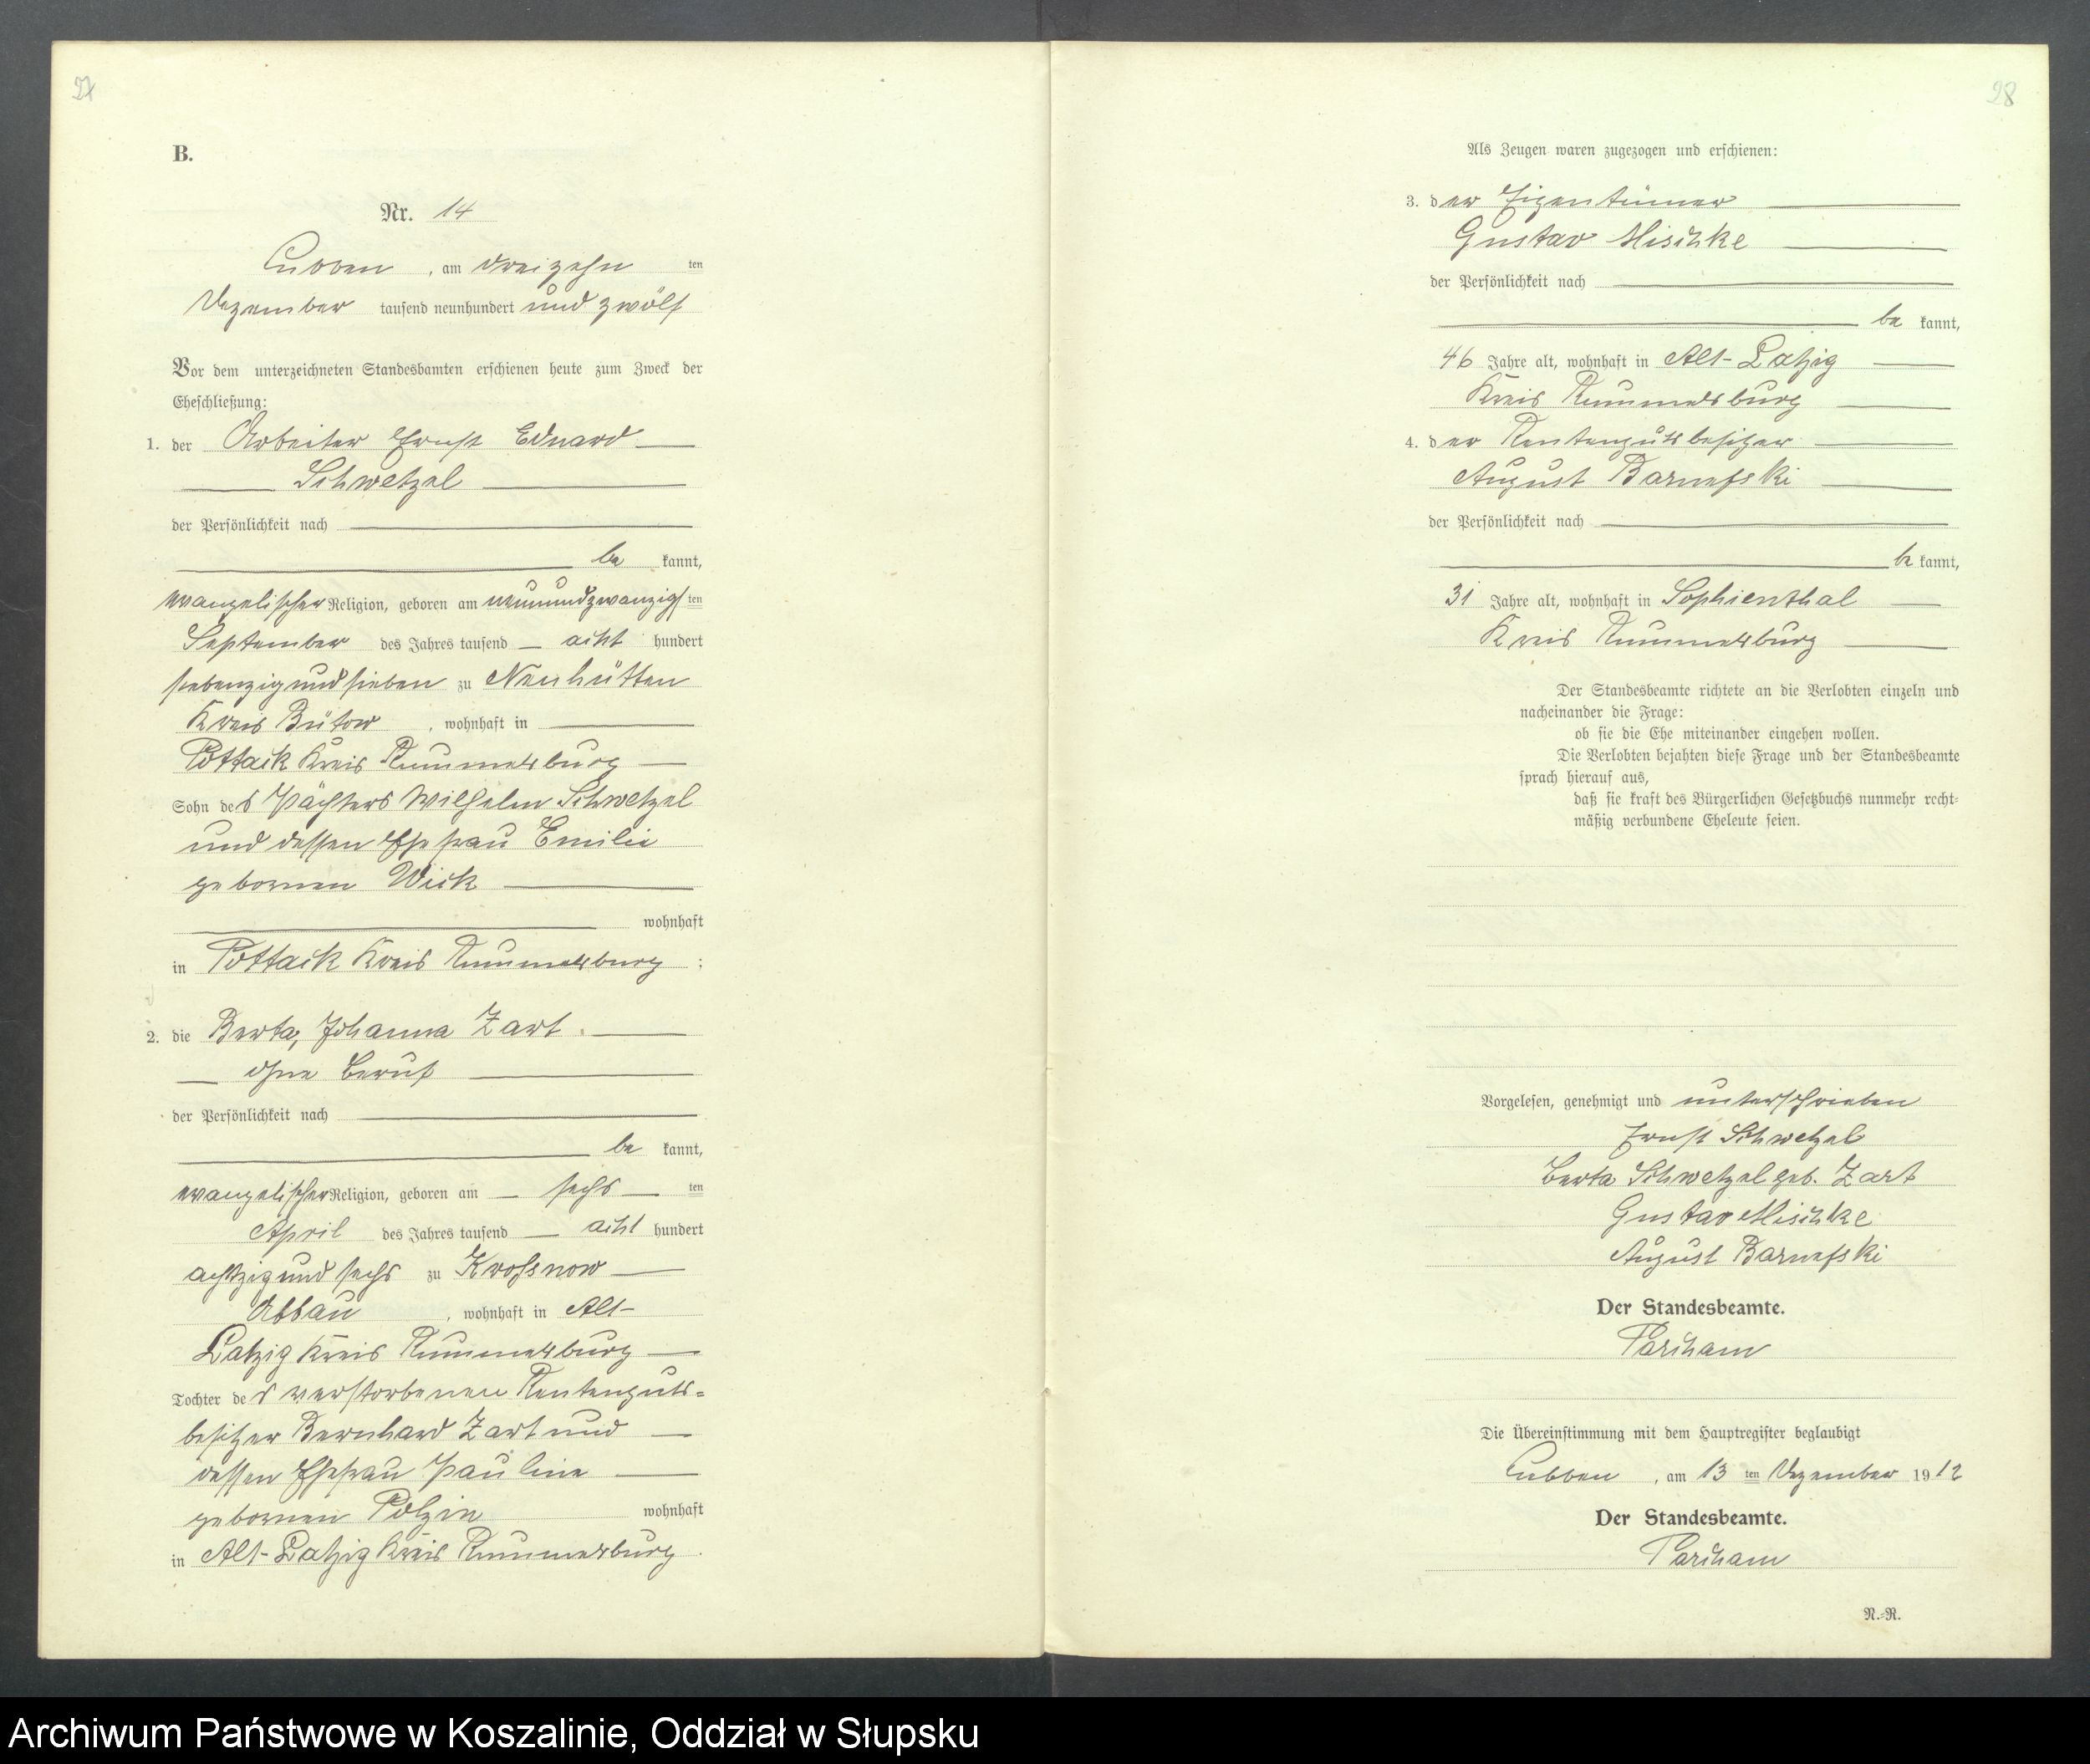 27
B.
Nr. 14
Cubben, am dreizehn ten
Dezember tausend neunhundert und zwölf
Vor dem unterzeichneten Standesbamten erschienen heute zum Zweck der
Eheschließung:
1. der Arbeiter Ernst Eduard
Schwetzel
der Persönlichkeit nach
be kannt,
evangelischer Religion, geboren am neunundzwanzigsten
September des Jahres tausend acht hundert
siebenzig und sieben zu Neuhütten
Kreis Bütow, wohnhaft in
Pottack Kreis Rummelsburg
Sohn des Pächters Wilhelm Schwetzel
und dessen Ehefrau Emilie
gebornen Wick
wohnhaft
in Pottack Kreis Rummelsburg;
2. die Berta, Johanna Zart
ohne Beruf
der Persönlichkeit nach
be kannt,
evangelischer Religion, geboren am sechs ten
April des Jahres tausend acht hundert
achtzig und sechs zu Krossnow
Abbau, wohnhaft in Alt-
Latzig Kreis Rummelsburg
Tochter des verstorbenen Rentenguts=
besitzer Bernhard Zart und
dessen Ehefrau Pauline
gebornen Polzin wohnhaft
in Alt-Latzig Kreis Rummelsburg.
28
Als Zeugen waren zugezogen und erschienen:
3. der Eigentümer
Gustav Mischke
der Persönlichkeit nach
be kannt,
46 Jahre alt, wohnhaft in Alt-Latzig
Kreis Rummelsburg
4. der Rentengutsbesitzer
August Barnefski
der Persönlichkeit nach
be kannt,
31 Jahre alt, wohnhaft in Sophienthal
Kreis Rummelsburg
Der Standesbeamte richtete an die Verlobten einzeln und
nacheinander die Frage:
ob sie die Ehe miteinander eingehen wollen.
Die Verlobten bejahten diese Frage und der Standesbeamte
sprach hierauf aus,
daß sie kraft des Bürgerlichen Gesetzbuchs nunmehr recht=
mäßig verbundene Eheleute seien.
Vorgelesen, genehmigt und unterschrieben
Ernst Schwetzel
Berta Schwetzel geb. Zart
Gustav Mischke
August Barnefski
Der Standesbeamte.
Parcham
Die Übereinstimmung mit dem Hauptregister beglaubigt
Cubben, am 13 ten Dezember 1912
Der Standesbeamte.
Parcham
N.=R.
Archiwum Państwowe w Koszalinie, Oddział w Słupsku